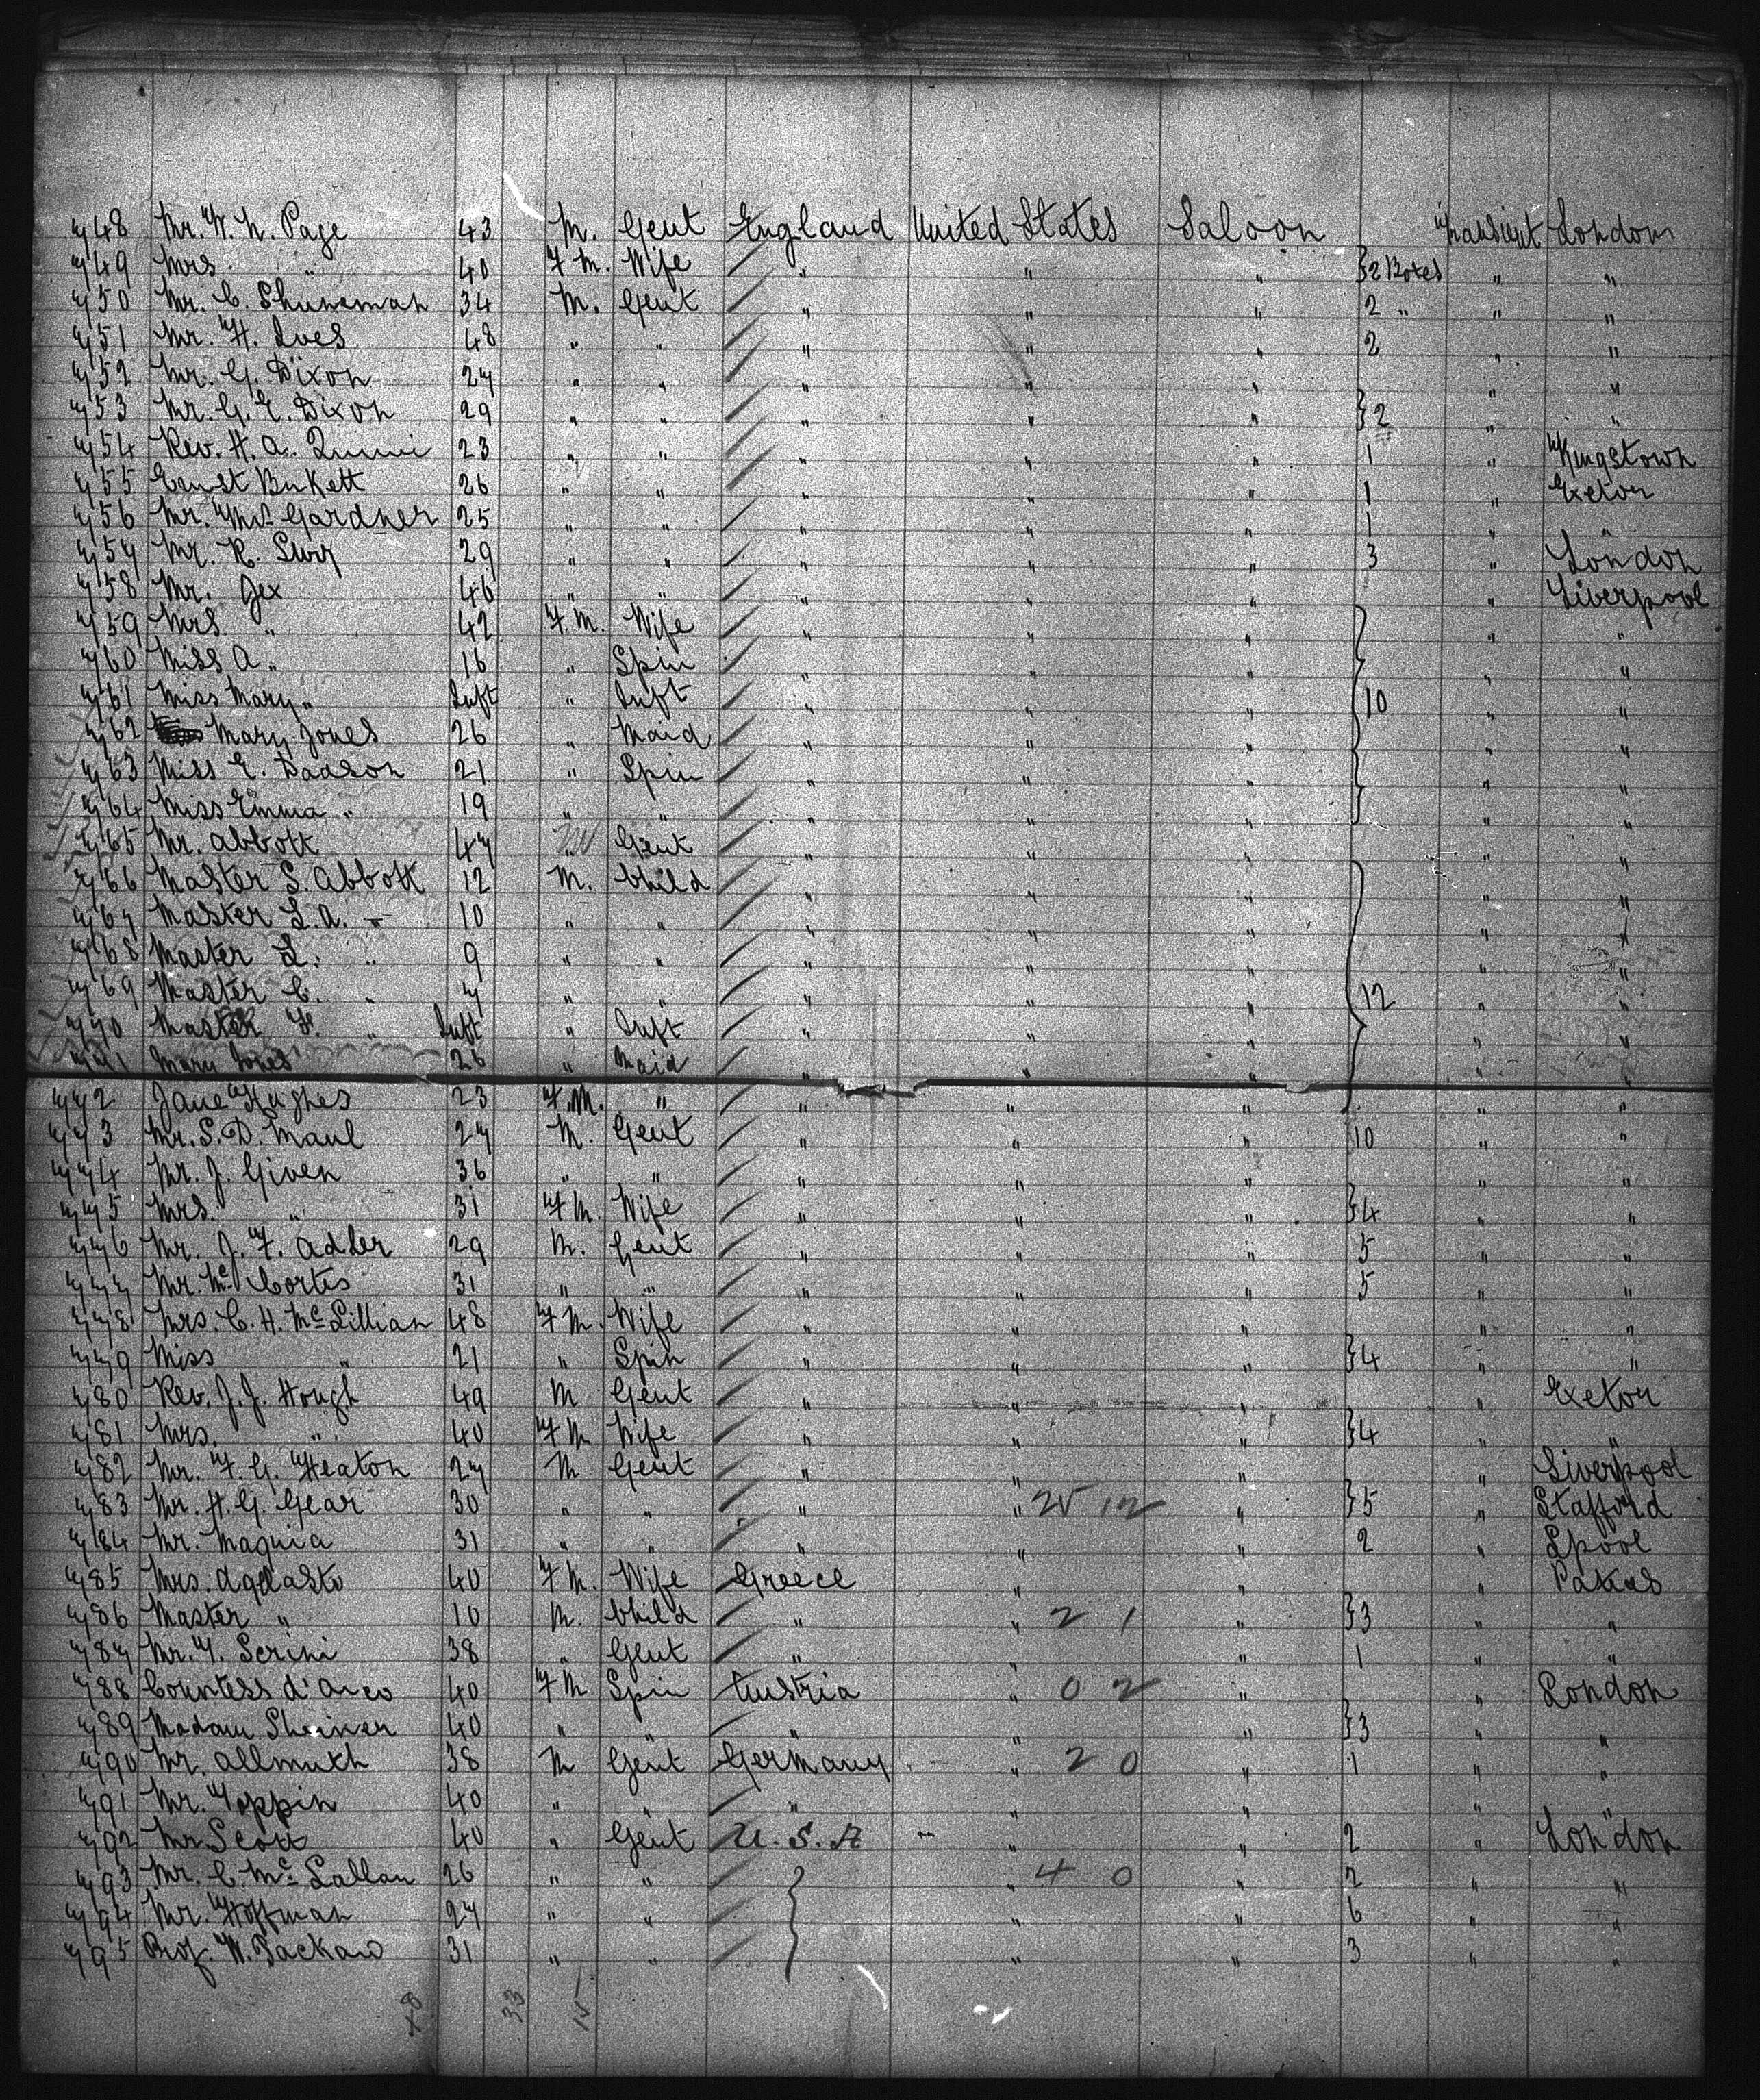 748 Mr. W. N. Page 43 M. Gent England United States Saloon Transient London
749 Mrs. " 40 F M. Wife " " " }2 Botes " "
750 Mr. C. Shuneman 34 M. Gent " " " 2 " " "
751 Mr. H. Ives 48 " " " " " 2 " "
752 Mr. G. Dixon 27 " " " " " "
753 Mr. G. E. Dixon 29 " " " " " }2 " "
754 Rev. H. A. 23 " " " " " 1 " Kingstown
755 Ernst Burkett 26 " " " " " 1 " Exetor
756 Mr. Gardner 25 " " " " " 1 " "
757 Mr. R. 29 " " " " " 3 " London
758 Mr. Jex 46 " " " " " " Liverpool
759 Mrs. " 42 F. M. Wife " " " " "
760 Miss A. " 16 " Spin " " " " "
761 Miss Mary " Inft " Inft " " " }10 " "
762 Mary Jones 26 " Maid " " " " "
763 Miss E. Dadson 21 " Spin " " " " "
764 Miss Emma " 19 " " " " " " "
765 Mr. Abbott 47 " Gent " " " " "
766 Master S. Abbott 12 M. Child " " " " "
767 Master L. A. " 10 " " " " " " "
768 Master L. " 9 " " " " " " "
769 Master C. " 7 " " " " " }12 " "
770 Master F. " Inft " Inft " " " " "
771 Mary Jones 26 " Maid " " " " "
772 Jane Hughes 23 F. M. " " " " " "
773 Mr. S. D. Maul 27 M. Gent " " " 10 " "
774 Mr. J. Given 36 " " " " " " "
775 Mrs. " 31 F M. Wife " " " }4 " "
776 Mr. J. F. Adler 29 M. Gent " " " 5 " "
777 Mr. Mc Cortis 31 " " " " " 5 " "
778 Mrs. C. H. McLillian 48 F M. Wife " " " " "
779 Miss " 21 " Spin " " " }4 " "
780 Rev. J. J. Hough 49 M Gent " " " " Exetor
781 Mrs. " 40 F M Wife " " " }4 "
782 Mr. F. G. Heaton 27 M Gent " " " " Liverpool
783 Mr. H. G. Gear 30 " " " " 25 12 " }5 " Stafford
784 Mr. Maguia 31 " " " " " 2 " Lpool
785 Mrs. Agelasto 40 F M. Wife Greece " " "
786 Master " 10 M. Child " " 2 1 " }3 " "
787 Mr. T. Serini 38 " Gent " " " 1 " "
788 Countess d'Arco 40 F M Spin Austria " 0 2 " " London
789 Madam Sheiner 40 " " " " " }3 " "
790 Mr. Allmuth 38 M Gent Germany " 2 0 " 1 " "
791 Mr. Toppin 40 " " " " " " "
792 Mr Scott 40 " Gent U. S. A " " 2 " London
793 Mr. C. Mc Lallan 26 " " " 4 0 " 2 " "
794 Mr. Hoffman 27 " " " " 6 " "
795 Prof. W. Packard 31 " " " " 3 " "
33 15